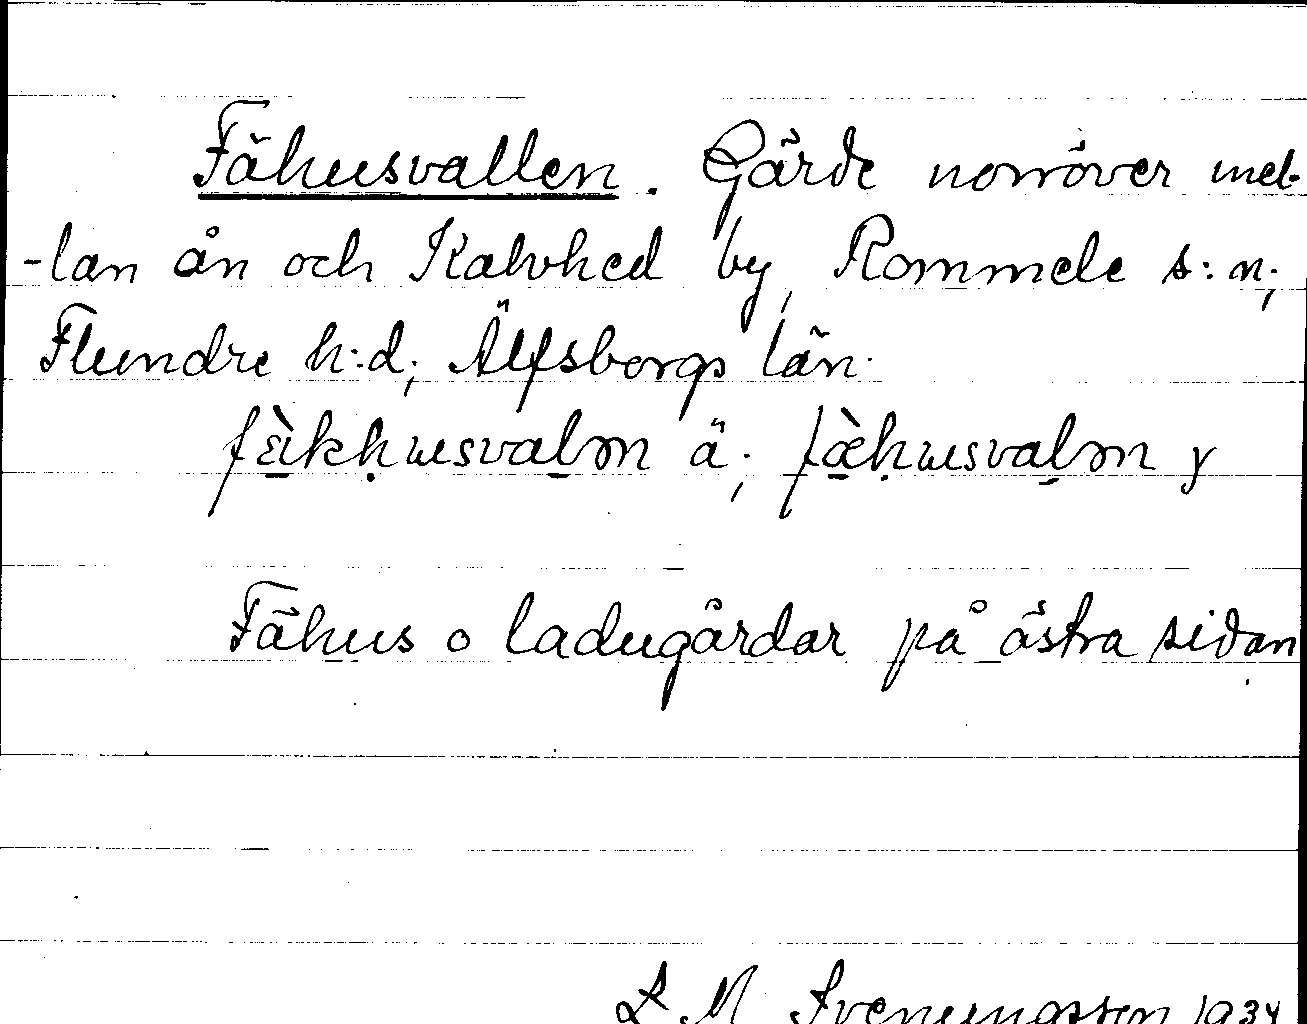 Fähusvallen. Gärde norröver mel-
-lan ån och Kalvhed by, Rommele s:n;
Flundre h:d; Älfsborgs län.
fὲkḥusvaln ä; fæ̀ḥusvaln y
Fähus o ladugårdar på östra sidan
L. M. Svenungsson 1934